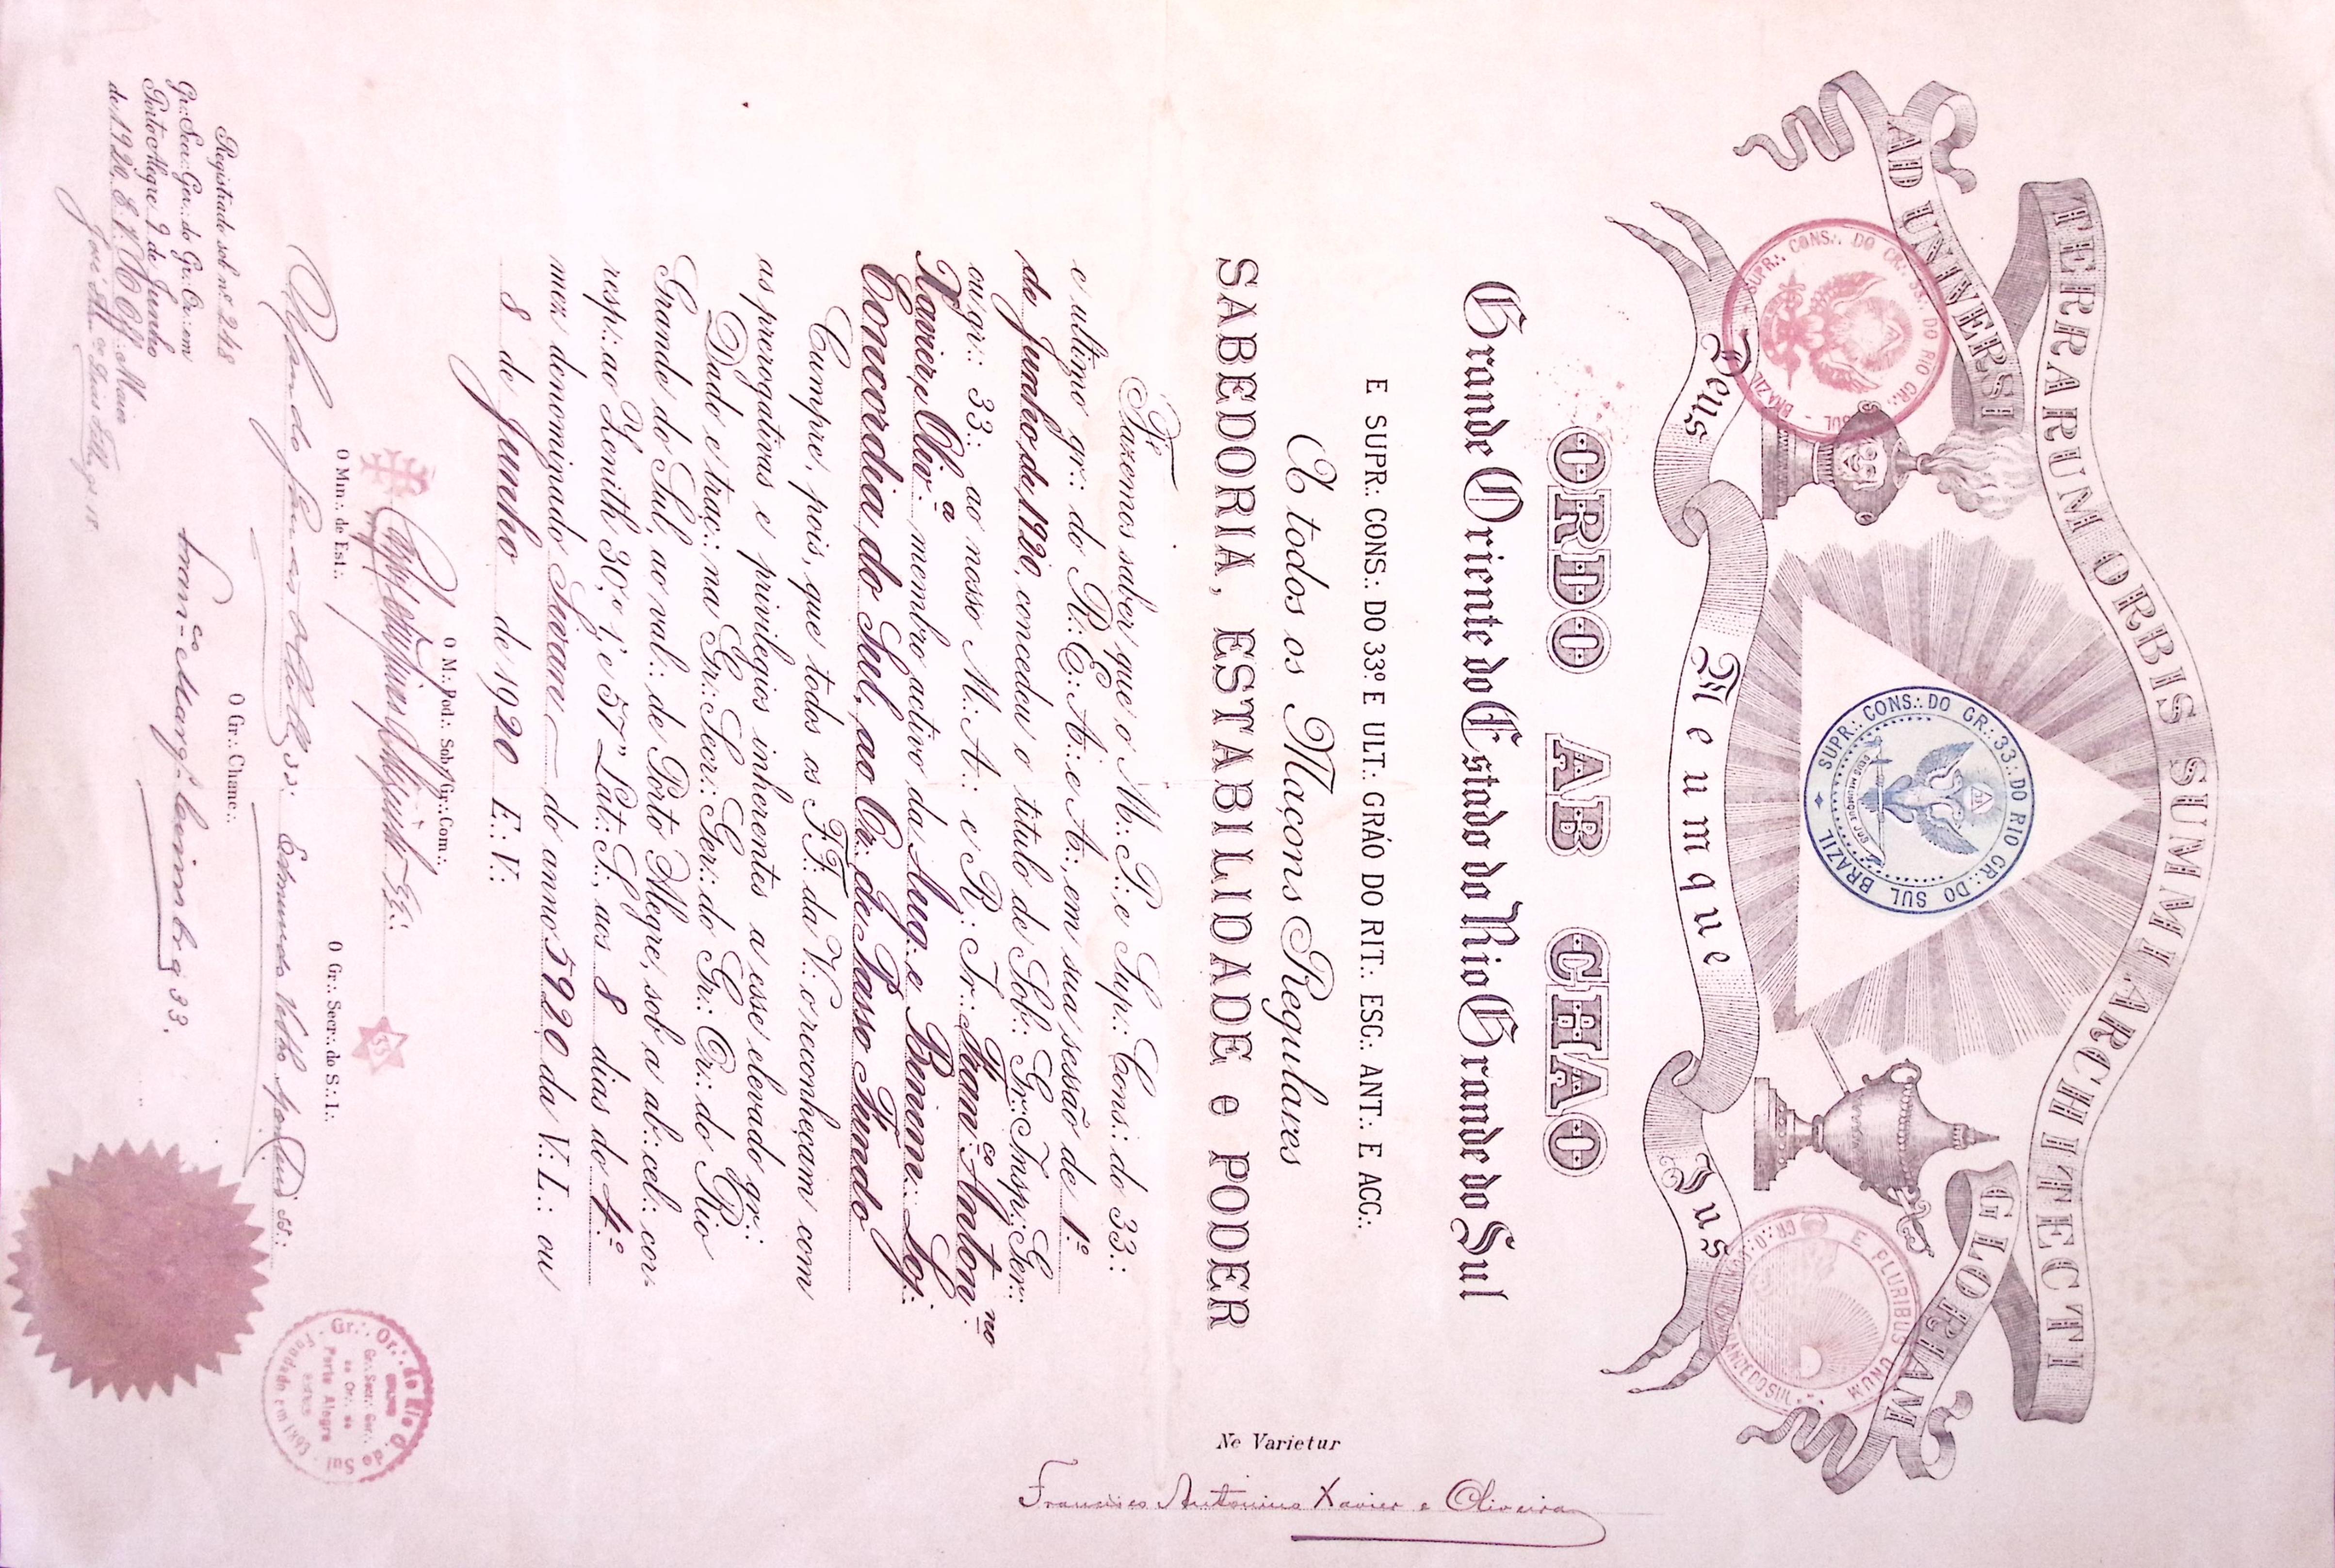 AD UNIVERSI TERRARUM ORBIS SUMMI ARCHITECTI GLORIAM
SUPR∴ CONS∴ DO GR∴ 33∴ DO RIO GR∴ DO SUL - BRAZIL
SUPR∴ CONS∴ DO GR∴ 33∴ DO RIO GR∴ DO SUL BRAZIL
DEUS MEUMQUE JUS
E PLURIBUS UNUM
GR∴ O∴ GRANDE DO SUL
Deus Meumque Jus
ORDO AB CHAO
Grande Oriente do Estado do Rio Grande do Sul
E SUPR∴ CONS∴ DO 33º E ULT∴ GRÁO DO RIT∴ ESC∴ ANT∴ E ACC∴
A todos os Maçons Regulares
SABEDORIA, ESTABILIDADE e PODER
Ne Varietur
Francisco Antonino Xavier e Oliveira
Fazemos saber que o M∴ P∴ e Sup∴ Cons∴ do 33∴
e ultimo gr∴ do R∴ E∴ A∴ e A∴, em sua sessão de 1º
de Junho de 1920, concedeu o titulo de Sob∴ Gr∴ Insp∴ Ger∴
au gr∴ 33∴ ao nosso M∴ A∴ e R∴ Ir∴ Franco Antonno
Xavier e Olivra membro activo da Aug. e Benem∴ Loj∴
Concordia do Sul, ao Or∴ de Passo Fundo
Cumpre, pois, que todos os FF∴ da V∴ o reconheçam com
as prerogativas e privilegios inherentes a esse elevado gr∴
Dado e traç∴ na Gr∴ Secr∴ Ger∴ do Gr∴ Or∴ do Rio
Grande do Sul, ao val∴ de Porto Alegre, sob a ab∴ cel∴ cor-
resp∴ ao Zenith 30,º 1' e 57" Lat∴ S∴, aos 8 dias do 4º
mez denominado Sivan do anno 5920 da V∴ L∴ ou
8 de Junho de 1920 E∴ V∴
O M∴ Pod∴ Sob∴ Gr∴ Com∴
33
O Min∴ de Est∴
O Gr∴ Secr∴ do S∴ I∴
33∴
Edmundo Velho 33∴
O Gr∴ Chanc∴
33.
Registado sob nº 248
Gr∴ Secr∴ Ger∴ do Gr∴ Or∴ em
Porto Alegre 9 de Junho
de 1920 E∴ V∴
Gr∴ Or∴ do Rio G. do Sul
Gr∴ Secr∴ Ger∴
ao Or∴ de
Porto Alegre
Fundado em 1893